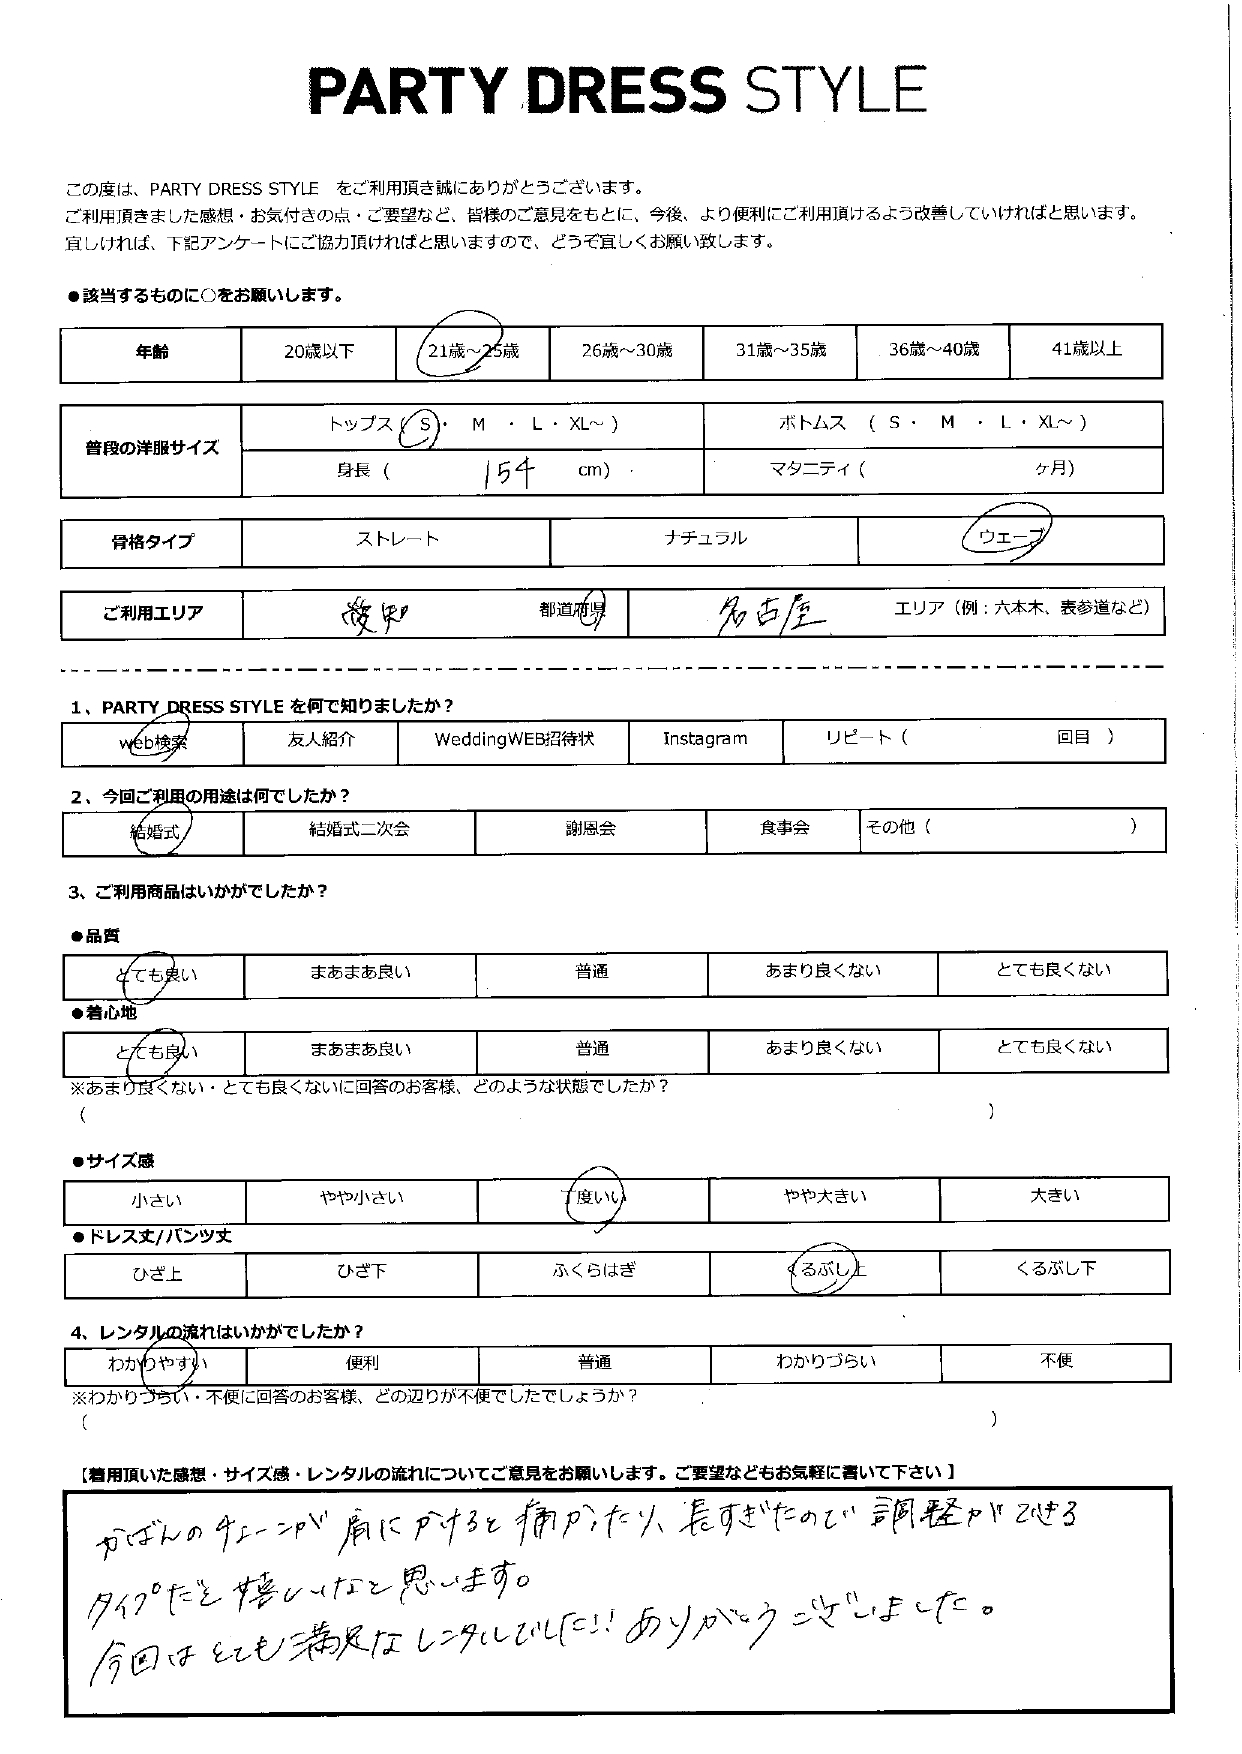 PARTY DRESS STYLE
この度は、PARTY DRESS STYLE をご利用頂き誠にありがとうございます。
ご利用頂きました感想・お気付きの点・ご要望など、皆様のご意見をもとに、今後、より便利にご利用頂けるよう改善していければと思います。
宜しければ、下記アンケートにご協力頂ければと思いますので、どうぞ宜しくお願い致します。
●該当するものに○をお願いします。
年齢 20歳以下 21歳～25歳 26歳～30歳 31歳～35歳 36歳～40歳 41歳以上
普段の洋服サイズ
トップス ( S ・ M ・ L ・ XL～ ) ボトムス ( S ・ M ・ L ・ XL～ )
身長 ( 154 cm) マタニティ ( ヶ月)
骨格タイプ ストレート ナチュラル ウェーブ
ご利用エリア 愛知 都道府県 名古屋 エリア（例：六本木、表参道など）
1、PARTY DRESS STYLE を何で知りましたか？
web検索 友人紹介 WeddingWEB招待状 Instagram リピート（ 回目 ）
2、今回ご利用の用途は何でしたか？
結婚式 結婚式二次会 謝恩会 食事会 その他（ ）
3、ご利用商品はいかがでしたか？
●品質
とても良い まあまあ良い 普通 あまり良くない とても良くない
●着心地
とても良い まあまあ良い 普通 あまり良くない とても良くない
※あまり良くない・とても良くないに回答のお客様、どのような状態でしたか？
（ ）
●サイズ感
小さい やや小さい 丁度いい やや大きい 大きい
●ドレス丈/パンツ丈
ひざ上 ひざ下 ふくらはぎ くるぶし上 くるぶし下
4、レンタルの流れはいかがでしたか？
わかりやすい 便利 普通 わかりづらい 不便
※わかりづらい・不便に回答のお客様、どの辺りが不便でしたでしょうか？
（ ）
【着用頂いた感想・サイズ感・レンタルの流れについてご意見をお願いします。ご要望などもお気軽に書いて下さい】
かばんのチェーンが肩にかけると痛かったり、長すぎたので調整ができる
タイプだと嬉しいなと思います。
今回はとても満足なレンタルでした!! ありがとうございました。